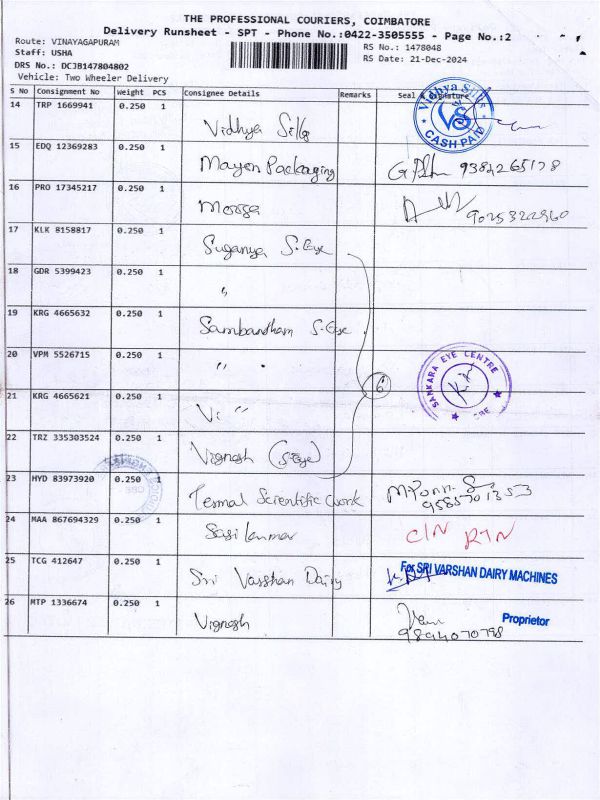 THE PROFESSIONAL COURIERS, COIMBATORE
Delivery Runsheet - SPT - Phone No.:0422-3505555 - Page No.:2
Route: VINAYAGAPURAM
Staff: USHA
DRS No.: DCJB147804802
Vehicle: Two Wheeler Delivery
RS No.: 1478048
RS Date: 21-Dec-2024
S No Consignment No Weight PCS Consignee Details Remarks Seal & Signature
14 TRP 1669941 0.250 1 Vidhya Silks
Vidhya Silks
VS
CASH PAID
15 EDQ 12369283 0.250 1 Mayen Packaging 9384265178
16 PRO 17345217 0.250 1 Moosa 9025322960
17 KLK 8158817 0.250 1 Suganya S.Eye
18 GDR 5399423 0.250 1 "
19 KRG 4665632 0.250 1 Sambandham S.Eye
20 VPM 5526715 0.250 1 "
6
SANKARA EYE CENTRE
CBE
21 KRG 4665621 0.250 1 Vi "
22 TRZ 335303524 0.250 1 Vignesh (S.Eye)
23 HYD 83973920 0.250 1 Termal Scientific Work 9585701353
24 MAA 867694329 0.250 1 Sasikumar C/N RTN
25 TCG 412647 0.250 1 Sri Varshan Dairy
For SRI VARSHAN DAIRY MACHINES
26 MTP 1336674 0.250 1 Vignesh
Proprietor
9894070798